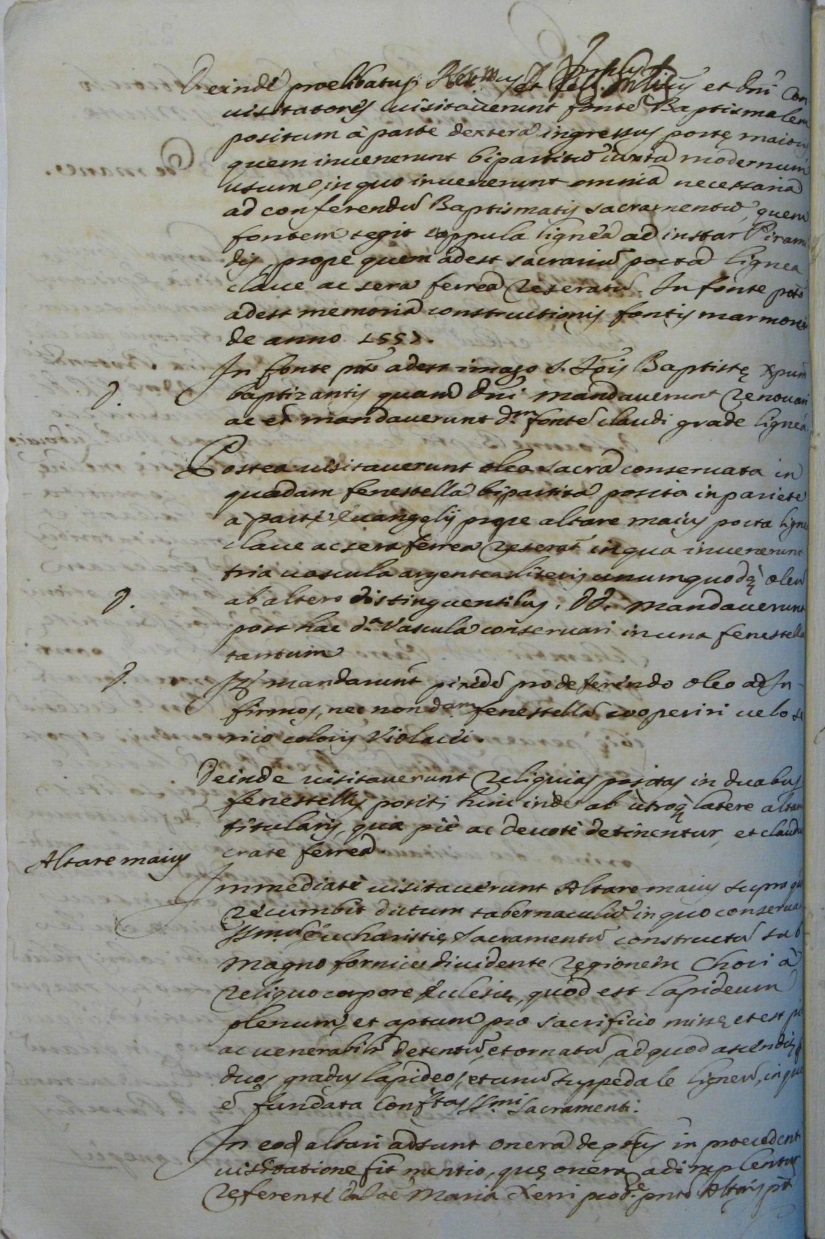 Deinde proelibatus et et dni
visitatores visitaverunt fonte Baptismalem
positum à parte dextera ingressus portę maioris
quem invenerunt bipartitū iuxta modernum
usum, in quo invenerunt omnia necessaria
ad conferendū Baptismatis sacramentū, quem
fontem tegit cuppula lignea ad instar Piram
dis, prope quem adest sacrariū porta lignea
clave ac sera ferrea reseratū. In fonte
adest memoria constructionis fontis marmorei
de anno 1557.
In fonte adest imago S. Jois Baptistę xpum
baptizantis quam dni mandaverunt renovari
ac et mandaverunt dm fonte claudi grade lignea
Postea visitaverunt olea sacra conservata in
quadam fenestella bipartita posita in pariete
à parte evangelij prope altare maius porta
clave ac sera ferrea in qua invenerunt
tria vascula argentea literis unumquodq oleū
ab altero distinguentibus; DD. Mandaverunt
post hac da Vascula conservari in una fenestella
tantum
mandarunt pro deferendo oleo ad In-
firmos, nec non dam fenestellā cooperiri velo se
rico coloris Violacei.
Deinde visitaverunt reliquias positas in duabus
fenestellis positi hinc inde ab utroq latere altaris
titularis, quæ piè ac devotè detinentur, et
crate ferrea
Altare maius
Immediatè visitaverunt Altare maius supra
recumbit dictum tabernaculū in quo conserva
Eucharistię Sacramentū constructū sub
magno fornice dividente regionem Chori à
reliquo corpore Ecclesię, quod est lapideum
plenum, et aptum pro sacrificio missę et est
ac venerabilr detentū et ornatū ad quod
duos gradus lapideos, et unū suppedale ligneū, in
ē fundata confrtas SSmi Sacramenti:
In eod altari adsunt onera de in precedenti
visitatione fit mentio, quę onera adimplentur
referente Maria Xerri